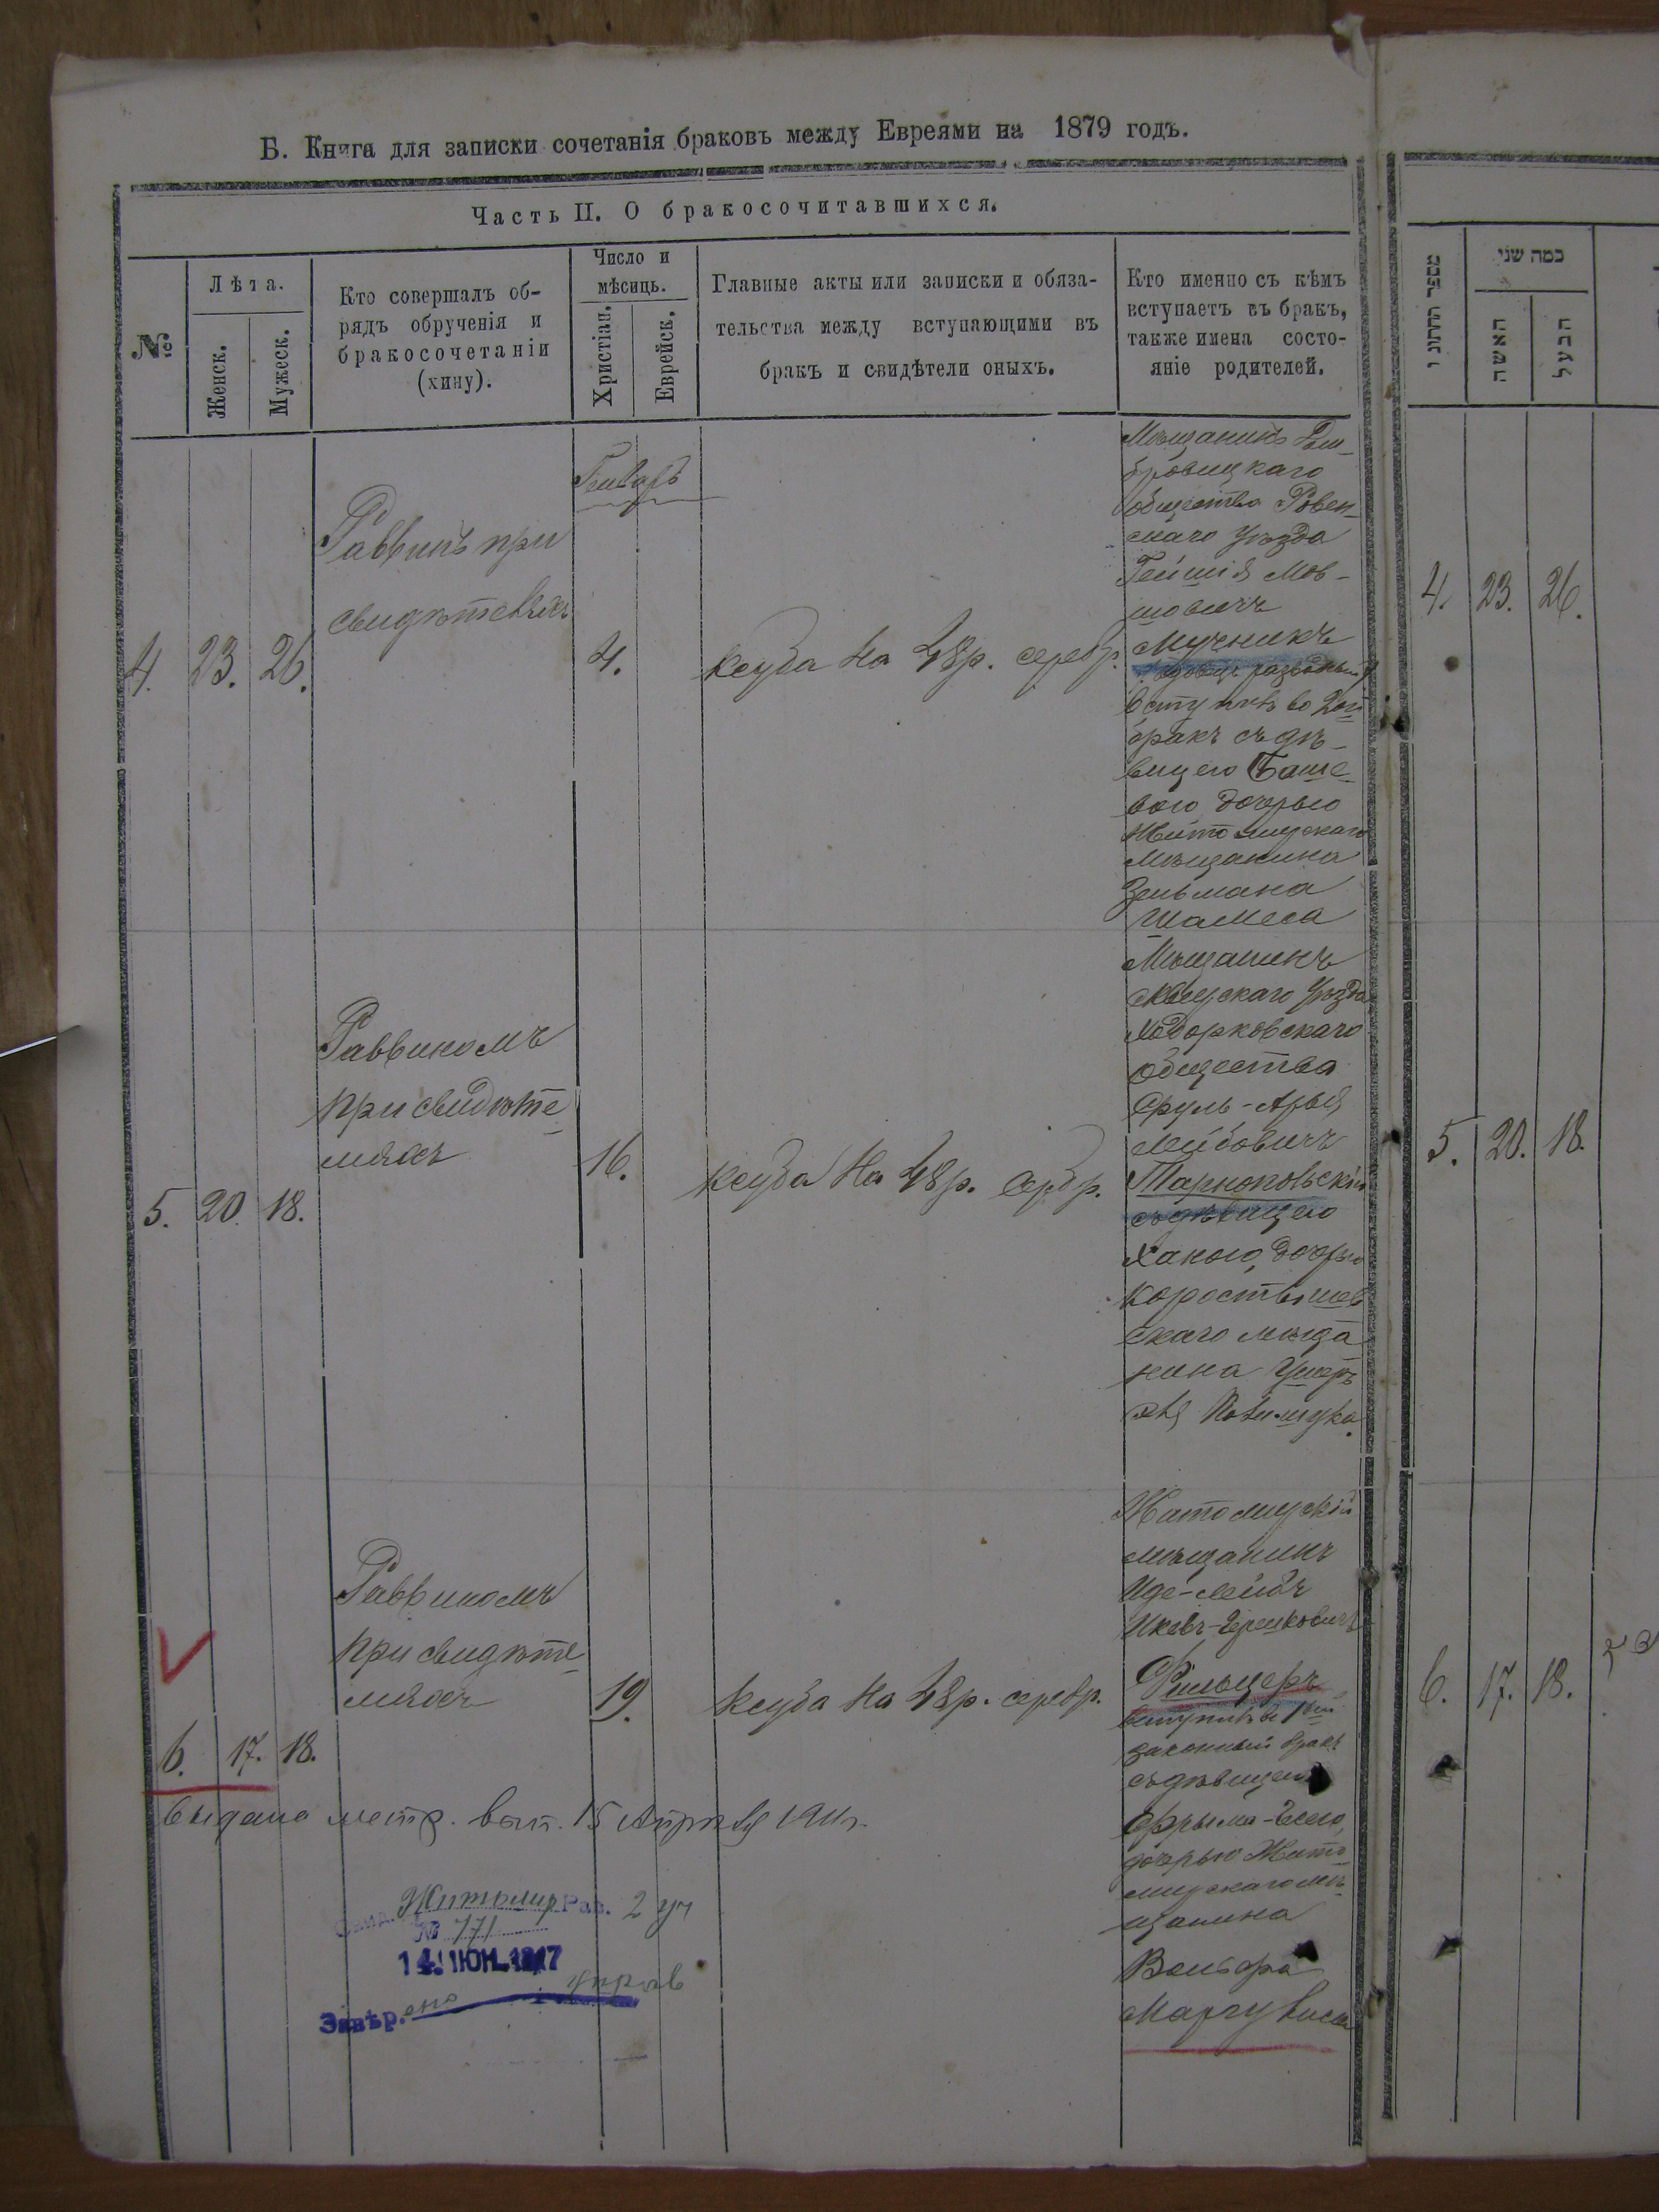 Б. Книга для записки сочетанія браковъ между Евреями на 1879 годъ.
Часть II. О бракосочитавшихся.
№
Лѣта.
Женск.
Мужеск.
Кто совершалъ об-
рядъ обрученія и
бракосочетаніи
(хину).
Число и
мѣсяць.
Христіан.
Еврейск.
Главные акты или записки и обяза-
тельства между вступающими въ
бракъ и свидѣтели оныхъ.
Кто именно съ кѣмъ
вступаетъ въ бракъ,
также имена состо-
яніе родителей.
4. 23. 26.
Раввинъ при
свидѣтеляхъ
Генварь
4.
Ксуба на 48 р. серебр.
Мѣщанинъ Дом-
бровицкаго
общества Ровен-
скаго Уѣзда
Гейшія Мов-
шовичъ
Мучникъ
разводный
вступилъ во 2ой
бракъ съ дѣ-
вицею Баше-
вою дочерью
Житомирскаго
Мѣщанина
Зельмана
Шамеса
5. 20. 18.
Раввиномъ
при свидѣте-
ляхъ
16.
Ксуба на 48 р. сербр.
Мѣщанинъ
Сквирскаго Уѣзда
Ходорковскаго
общества
Сруль-Арья
Лейбовичъ
Тарнопольскій
съ дѣвицею
Ханою, дочерью
Коростышев
скаго мѣща
нина
Полищука.
6. 17. 18.
Раввиномъ
при свидѣте-
ляхъ
19.
Ксуба на 48 р. серебр.
Житомирскій
мѣщанинъ
Иде-Лейбъ
Фильцеръ
вступилъ въ 1ый
законный бракъ
съ дѣвицею
Фрыма-
дочерью Жито-
мирскаго мѣ-
щанина
Вольфа
Маргулиса
Выдана метр. вып. 15 Апрѣля 1911 г.
Житомир Рав. 2 уч
№ 771
14 ИЮН. 1917
Завѣр.
מספר החתוני
כמה שני
האשה
הבעל
4. 23. 26.
5. 20. 18.
6. 17. 18.